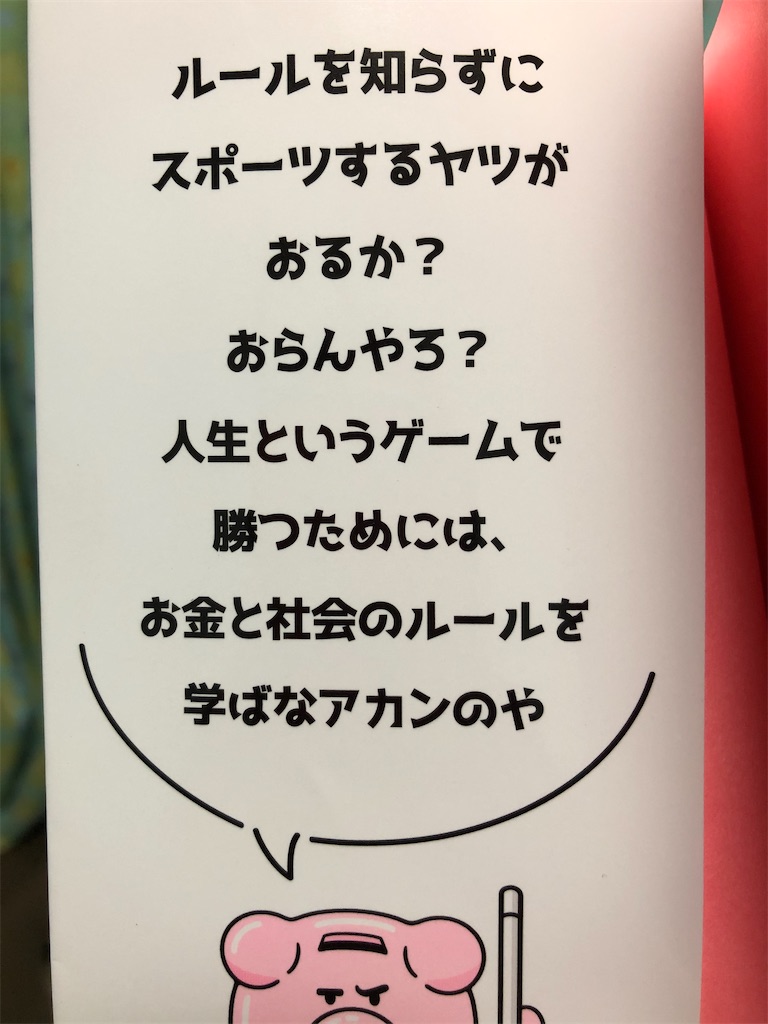 ルールを知らずに
スポーツするヤツが
おるか？
おらんやろ？
人生というゲームで
勝つためには、
お金と社会のルールを
学ばなアカンのや